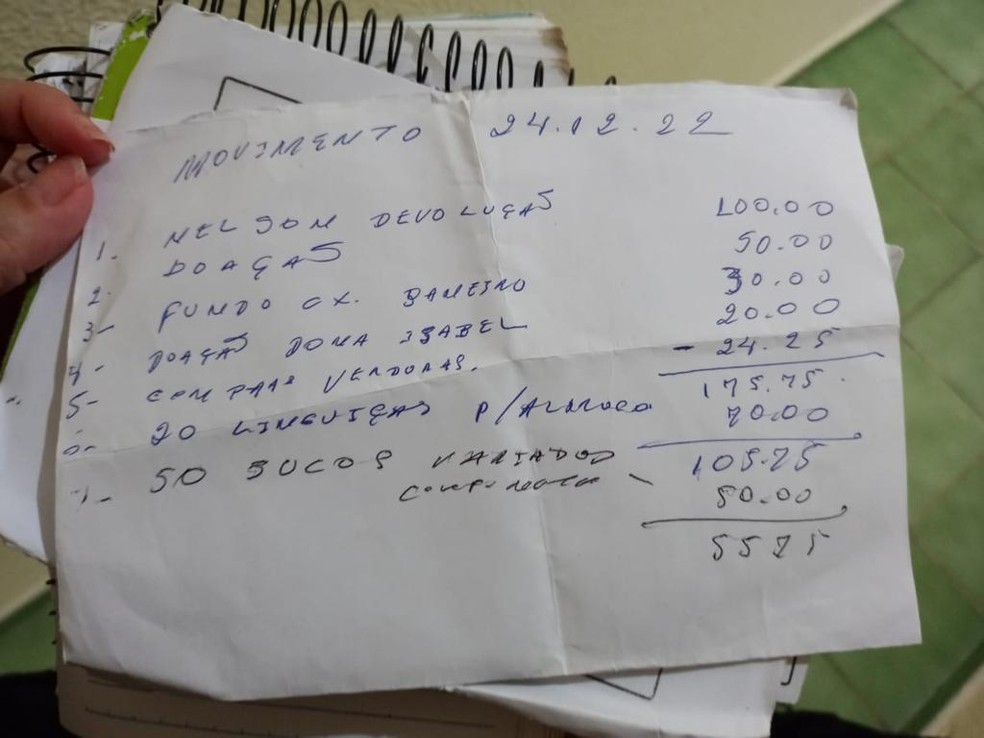 MOVIMENTO 24.12.22
1- NELSON DEVOLUÇAS 100.00
2- DOAÇAS 50.00
3- FUNDO CX. BANEIRO 30.00
4- DOAÇAS DONA ISABEL 20.00
5- COMPRAS VERDURAS. - 24.25
175.75
6- 20 LINGUIÇAS P/ALMOÇO 70.00
105.75
7- 50 SUCOS VARIADOS
- 50.00
5575